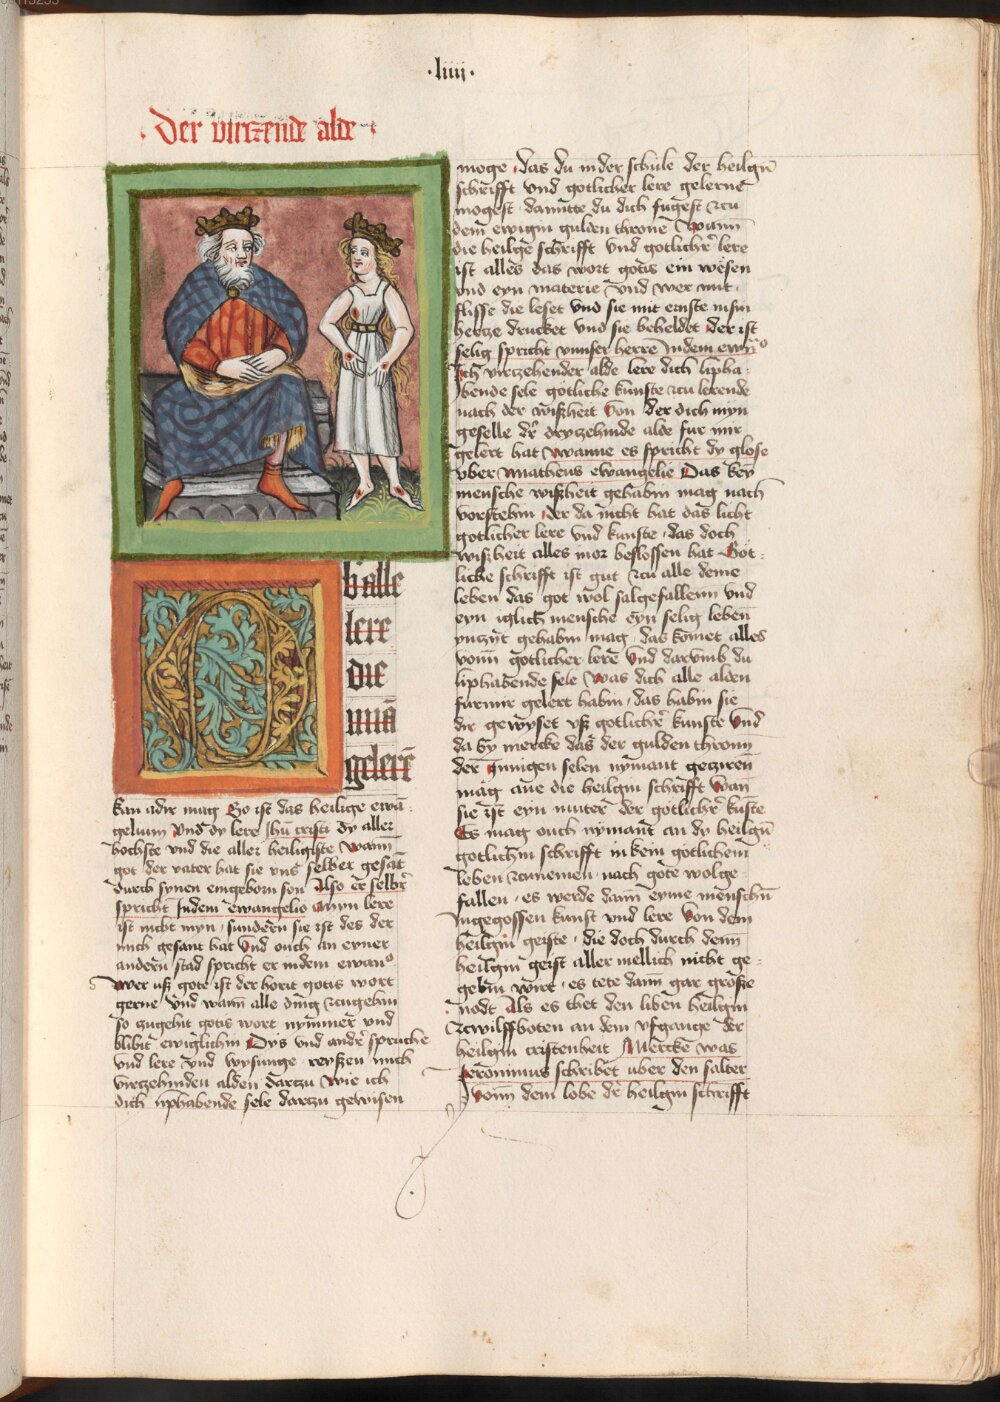 ·liiij·
Der virczende alde
Obir alle
lere
die
man
gelerē
kan adir mag So ist das heilige ewā-
gelium Vnd dy lere Jhū cristi dy aller
hochste vnd die aller heiligiste Wann
got der vater hat sie vns selber gesāt
durch synen eingeborn son Also er selbr̄
spricht Indem ewangelio myn lere
ist nicht myn, sundern sie ist des der
mich gesant hat Vnd ouch an eyner
andern stad spricht er indem ewan͞o
Wer uß gote ist der horit gotis wort
gerne Vnd wann alle ding zcugehin
so zugehit gotis wort nymmer vnd
blibit ewiglichin Dys vnd andr̄ spruche
vnd lere vnd wysunge reyßen mich
virczehinden alden darczu Wie ich
dich liphabende sele darczu gewisen
moge, das du in der schule der heilgn̄
schrifft vnd gotlicher lere gelerne
mogest damitte du dich fugest zcu
dem ewigin gulden throne Wann
die heilge schrifft vnd gotlichr̄ lere
ist alles das wort gotis ein wesen
vnd eyn materie Vnd wer mit
flisse die leset vnd sie mit ernste in sin
hercze drucket vnd sie beheldet der ist
selig spricht vnnser herre Indem ewan͞o
Ich virczehender alde lere dich lipha-
bende sele gotliche kunste zcu lerende
nach der wißheit Von der dich myn
geselle dr̄ dryczehinde alde fur mir
gelert hat Wanne es spricht dy glose
vber Matheus ewangelie Das keyn
mensche wißheit gehabin mag nach
vorstehin, der da nicht hat das licht
gotlicher lere vnd kunste, das doch
wißheit alles mor beslossen hat Got-
liche schrifft ist gut zcu alle deme
leben das got wol salgefallenn vnd
eyn iglich mensche eyn selig leben
ynczijt gehabin mag, das komet alles
vonn gotlicher lere Vnd darvmb du
liphabende sele Was dich alle alden
furmir gelert habin, das habin sie
dir gewyset vß gotlichr̄ kunste Vnd
da by mercke das der gulden thronn
der ynnigen selen nymant geczirenn
mag ane die heilgin schrifft Wan
sie ist eyn muter der gotlichr̄ kuste
Es mag ouch nymant an dy heilgn̄
gotlichin schrifft in kein gotlichem
leben zcunemen, nach gote wolge-
fallen, es werde dann eyme menschn̄
ingegossen kunst vnd lere Von dem
heilgin geiste, die doch durch denn
heilgin geist aller mellich nicht ge-
gebin wirt, es tete dann gar große
nodt Als es thet den liben heilgin
zcwilffboten an dem vfgange der
heilgin cristenheit Mercke was
Jeronimus schribet uber den salter
Vonn dem lobe dr̄ heilgin schrifft